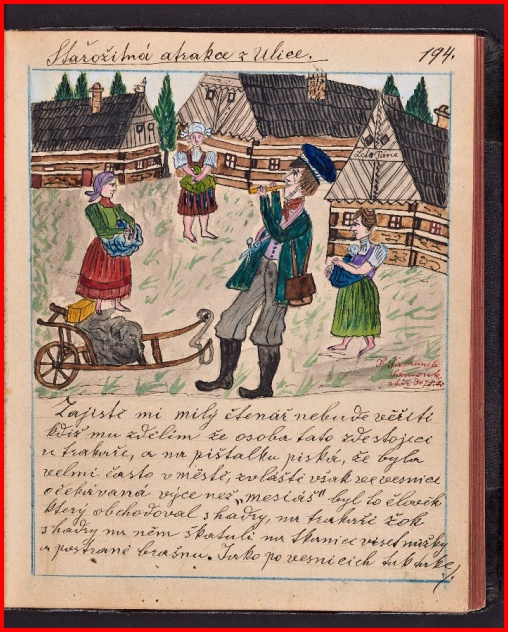 Starožitná atrakce z Ulice.
194.
Léta Páně
Zajisté mi milý čtenář nebude věřiti
když mu zdělím že osoba tato zde stojící
u trakaře, a na píšťalku píská, že byla
velmi často v městě, zvláště však ve vesnici
očekávaná výce než „mesiáš" byl to člověk
který obchodoval s hadry, na trakaři žok
s hadry na něm škatuli na tkanice viset nůžky
a postraně brašnu. Jako po vesnicích tak také